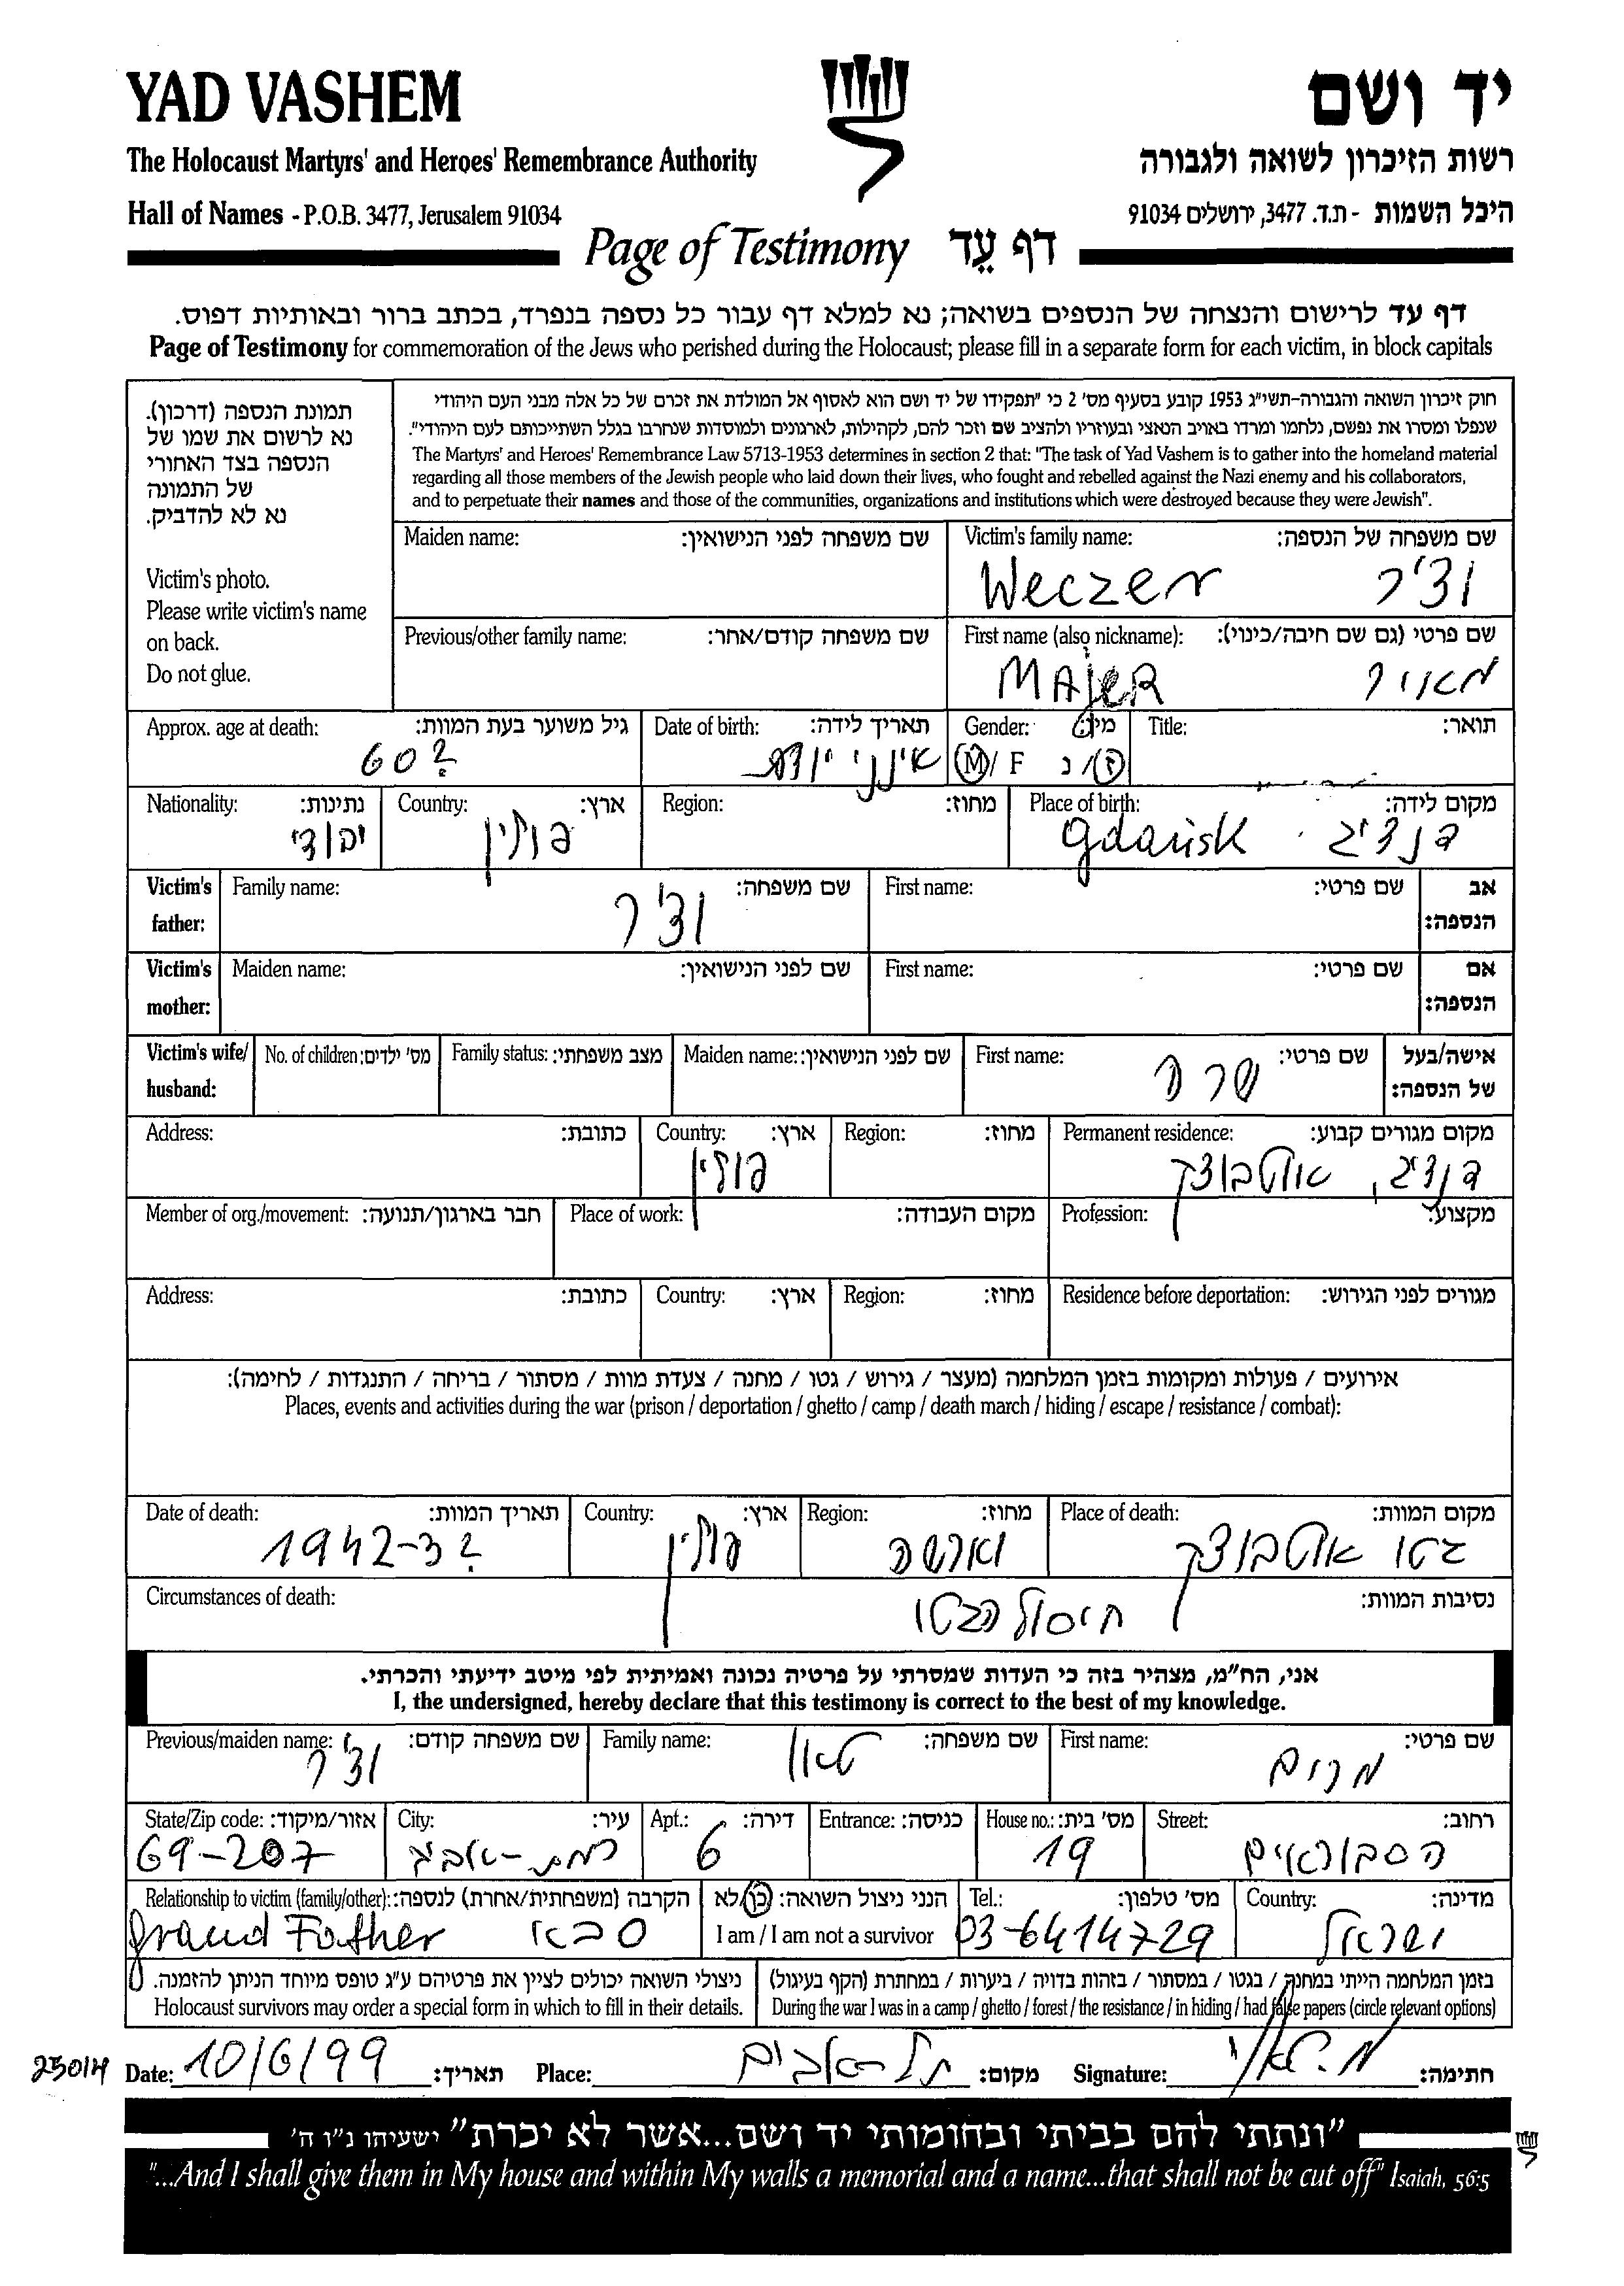 YAD VASHEM יד ושם
The Holocaust Martyrs' and Heroes' Remembrance Authority רשות הזיכרון לשואה ולגבורה
Hall of Names - P.O.B. 3477, Jerusalem 91034 היכל השמות - ת.ד. 3477, ירושלים 91034
Page of Testimony דף עֵד
דף עד לרישום והנצחה של הנספים בשואה; נא למלא דף עבור כל נספה בנפרד, בכתב ברור ובאותיות דפוס.
Page of Testimony for commemoration of the Jews who perished during the Holocaust; please fill in a separate form for each victim, in block capitals
תמונת הנספה (דרכון).
נא לרשום את שמו של
הנספה בצד האחורי
של התמונה
נא לא להדביק.
Victim's photo.
Please write victim's name
on back.
Do not glue.
חוק זיכרון השואה והגבורה-תשי"ג 1953 קובע בסעיף מס' 2 כי "תפקידו של יד ושם הוא לאסוף אל המולדת את זכרם של כל אלה מבני העם היהודי
שנפלו ומסרו את נפשם, נלחמו ומרדו באויב הנאצי ובעוזריו ולהציב שם וזכר להם, לקהילות, לארגונים ולמוסדות שנחרבו בגלל השתייכותם לעם היהודי".
The Martyrs' and Heroes' Remembrance Law 5713-1953 determines in section 2 that: "The task of Yad Vashem is to gather into the homeland material
regarding all those members of the Jewish people who laid down their lives, who fought and rebelled against the Nazi enemy and his collaborators,
and to perpetuate their names and those of the communities, organizations and institutions which were destroyed because they were Jewish".
Maiden name: שם משפחה לפני הנישואין: Victim's family name: שם משפחה של הנספה:
Weczer וצ'ר
Previous/other family name: שם משפחה קודם/אחר: First name (also nickname): שם פרטי (גם שם חיבה/כינוי):
MAJER מאיר
Approx. age at death: גיל משוער בעת המוות: Date of birth: תאריך לידה: Gender: מין: Title: תואר:
60? אינני יודעת M / F ז / נ
Nationality: נתינות: Country: ארץ: Region: מחוז: Place of birth: מקום לידה:
יהודי פולין Gdańsk דנציג
Victim's father: Family name: שם משפחה: First name: שם פרטי: אב הנספה:
וצ'ר
Victim's mother: Maiden name: שם לפני הנישואין: First name: שם פרטי: אם הנספה:
Victim's wife/ husband: No. of children: מס' ילדים: Family status: מצב משפחתי: Maiden name: שם לפני הנישואין: First name: שם פרטי: אישה/בעל של הנספה:
שרה
Address: כתובת: Country: ארץ: Region: מחוז: Permanent residence: מקום מגורים קבוע:
פולין דנציג, אוטבוצק
Member of org./movement: חבר בארגון/תנועה: Place of work: מקום העבודה: Profession: מקצוע:
Address: כתובת: Country: ארץ: Region: מחוז: Residence before deportation: מגורים לפני הגירוש:
אירועים / פעולות ומקומות בזמן המלחמה (מעצר / גירוש / גטו / מחנה / צעדת מוות / מסתור / בריחה / התנגדות / לחימה):
Places, events and activities during the war (prison / deportation / ghetto / camp / death march / hiding / escape / resistance / combat):
Date of death: תאריך המוות: Country: ארץ: Region: מחוז: Place of death: מקום המוות:
1942-3? פולין וארשה גטו אוטבוצק
Circumstances of death: נסיבות המוות:
חיסול הגטו
אני, הח"מ, מצהיר בזה כי העדות שמסרתי על פרטיה נכונה ואמיתית לפי מיטב ידיעתי והכרתי.
I, the undersigned, hereby declare that this testimony is correct to the best of my knowledge.
Previous/maiden name: שם משפחה קודם: Family name: שם משפחה: First name: שם פרטי:
וצ'ר מרים
State/Zip code: אזור/מיקוד: City: עיר: Apt.: דירה: Entrance: כניסה: House no.: מס' בית: Street: רחוב:
69-207 רמת-אביב 6 19 הסבוראים
Relationship to victim (family/other): הקרבה (משפחתית/אחרת) לנספה: הנני ניצול השואה: כן/לא Tel.: מס' טלפון: Country: מדינה:
grand Father סבא I am / I am not a survivor 03-6414729 ישראל
ניצולי השואה יכולים לציין את פרטיהם ע"ג טופס מיוחד הניתן להזמנה. בזמן המלחמה הייתי במחנה / בגטו / במסתור / בזהות בדויה / ביערות / במחתרת (הקף בעיגול)
Holocaust survivors may order a special form in which to fill in their details. During the war I was in a camp / ghetto / forest / the resistance / in hiding / had false papers (circle relevant options)
25014 Date: 10/6/99 תאריך: Place: תל-אביב מקום: Signature: חתימה:
"ונתתי להם בביתי ובחומותי יד ושם...אשר לא יכרת" ישעיהו נ"ו ה'
"...And I shall give them in My house and within My walls a memorial and a name...that shall not be cut off" Isaiah, 56:5